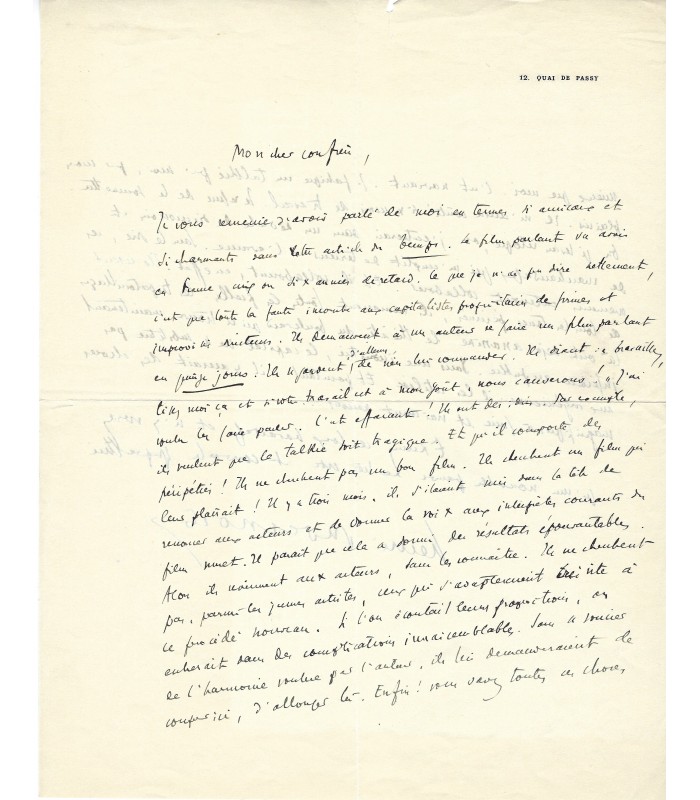 12. QUAI DE PASSY
Mon cher confrère,
Je vous remercie d'avoir parlé de moi en termes si amicaux et
si charmants dans votre article du Temps. Le film parlant va avoir
en France, cinq ou six années de retard. Ce que je n'ai pu dire nettement,
c'est que toute la faute incombe aux capitalistes propriétaires de firmes et
improvisés directeurs. Ils demandent à un auteur de faire un film parlant
en quinze jours. Ils se gardent, d'ailleurs, de rien lui commander. Ils disent : « travaillez,
moi ça et si votre travail est à mon goût, nous causerons ! » J'ai
voulu les faire parler. C'est effarant ! Ils ont des idées. Par exemple,
ils veulent que le talkie soit tragique. Et qu'il comporte des
péripéties ! Ils ne cherchent pas un bon film. Ils cherchent un film qui
leur plairait ! Il y a trois mois, ils s'étaient mis dans la tête de
renoncer aux acteurs et de donner la voix aux interprètes courants du
film muet. Il paraît que cela a donné des résultats épouvantables.
Alors ils viennent aux acteurs, sans les connaître. Ils ne cherchent
pas, parmi les jeunes artistes, ceux qui s'adapteraient très vite à
ce procédé nouveau. Si l'on écoutait leurs propositions, on
entrerait dans des complications invraisemblables. Sans se soucier
de l'harmonie voulue par l'auteur, ils lui demanderaient de
couper ici, d'allonger là. Enfin ! vous savez toutes ces choses